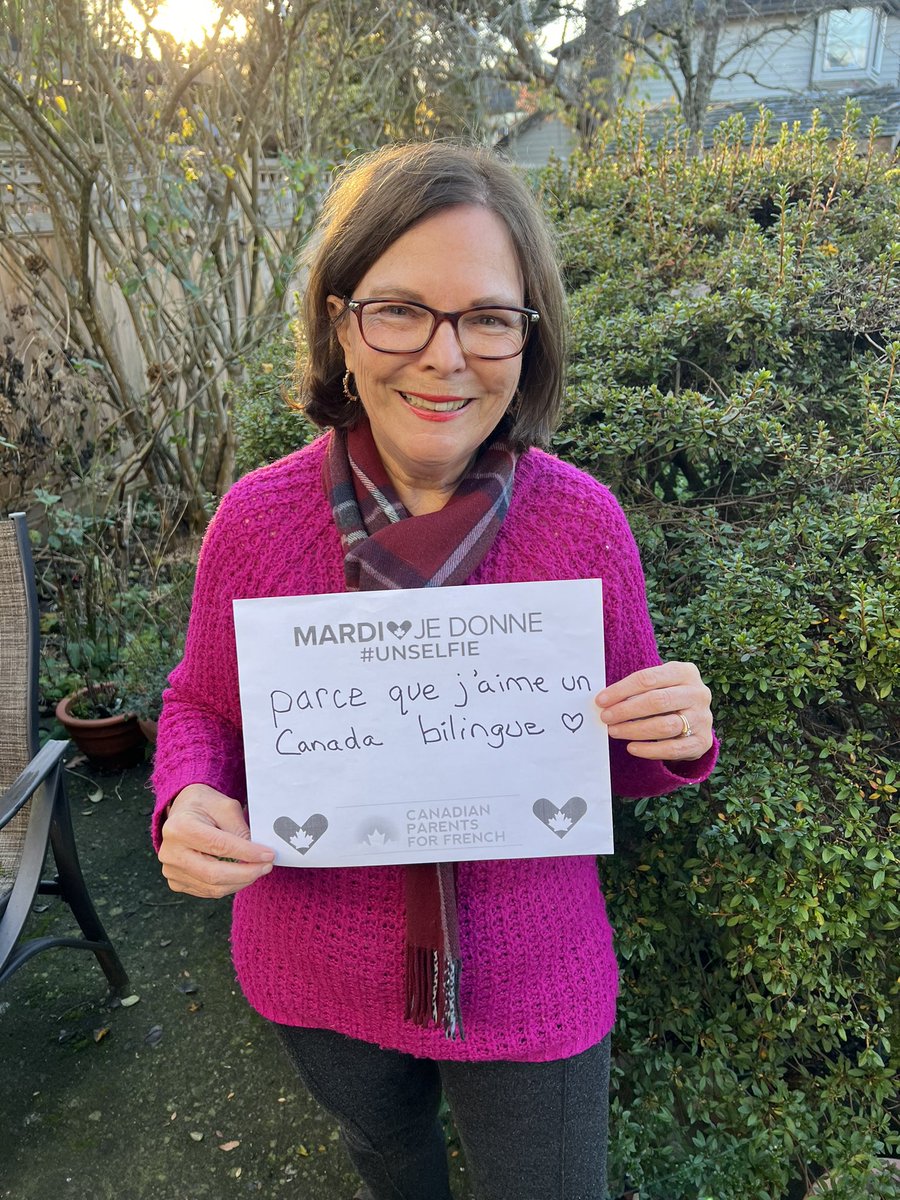 MARDI JE DONNE
#UNSELFIE
parce que j'aime un
Canada bilingue ♡
CANADIAN
PARENTS
FOR FRENCH